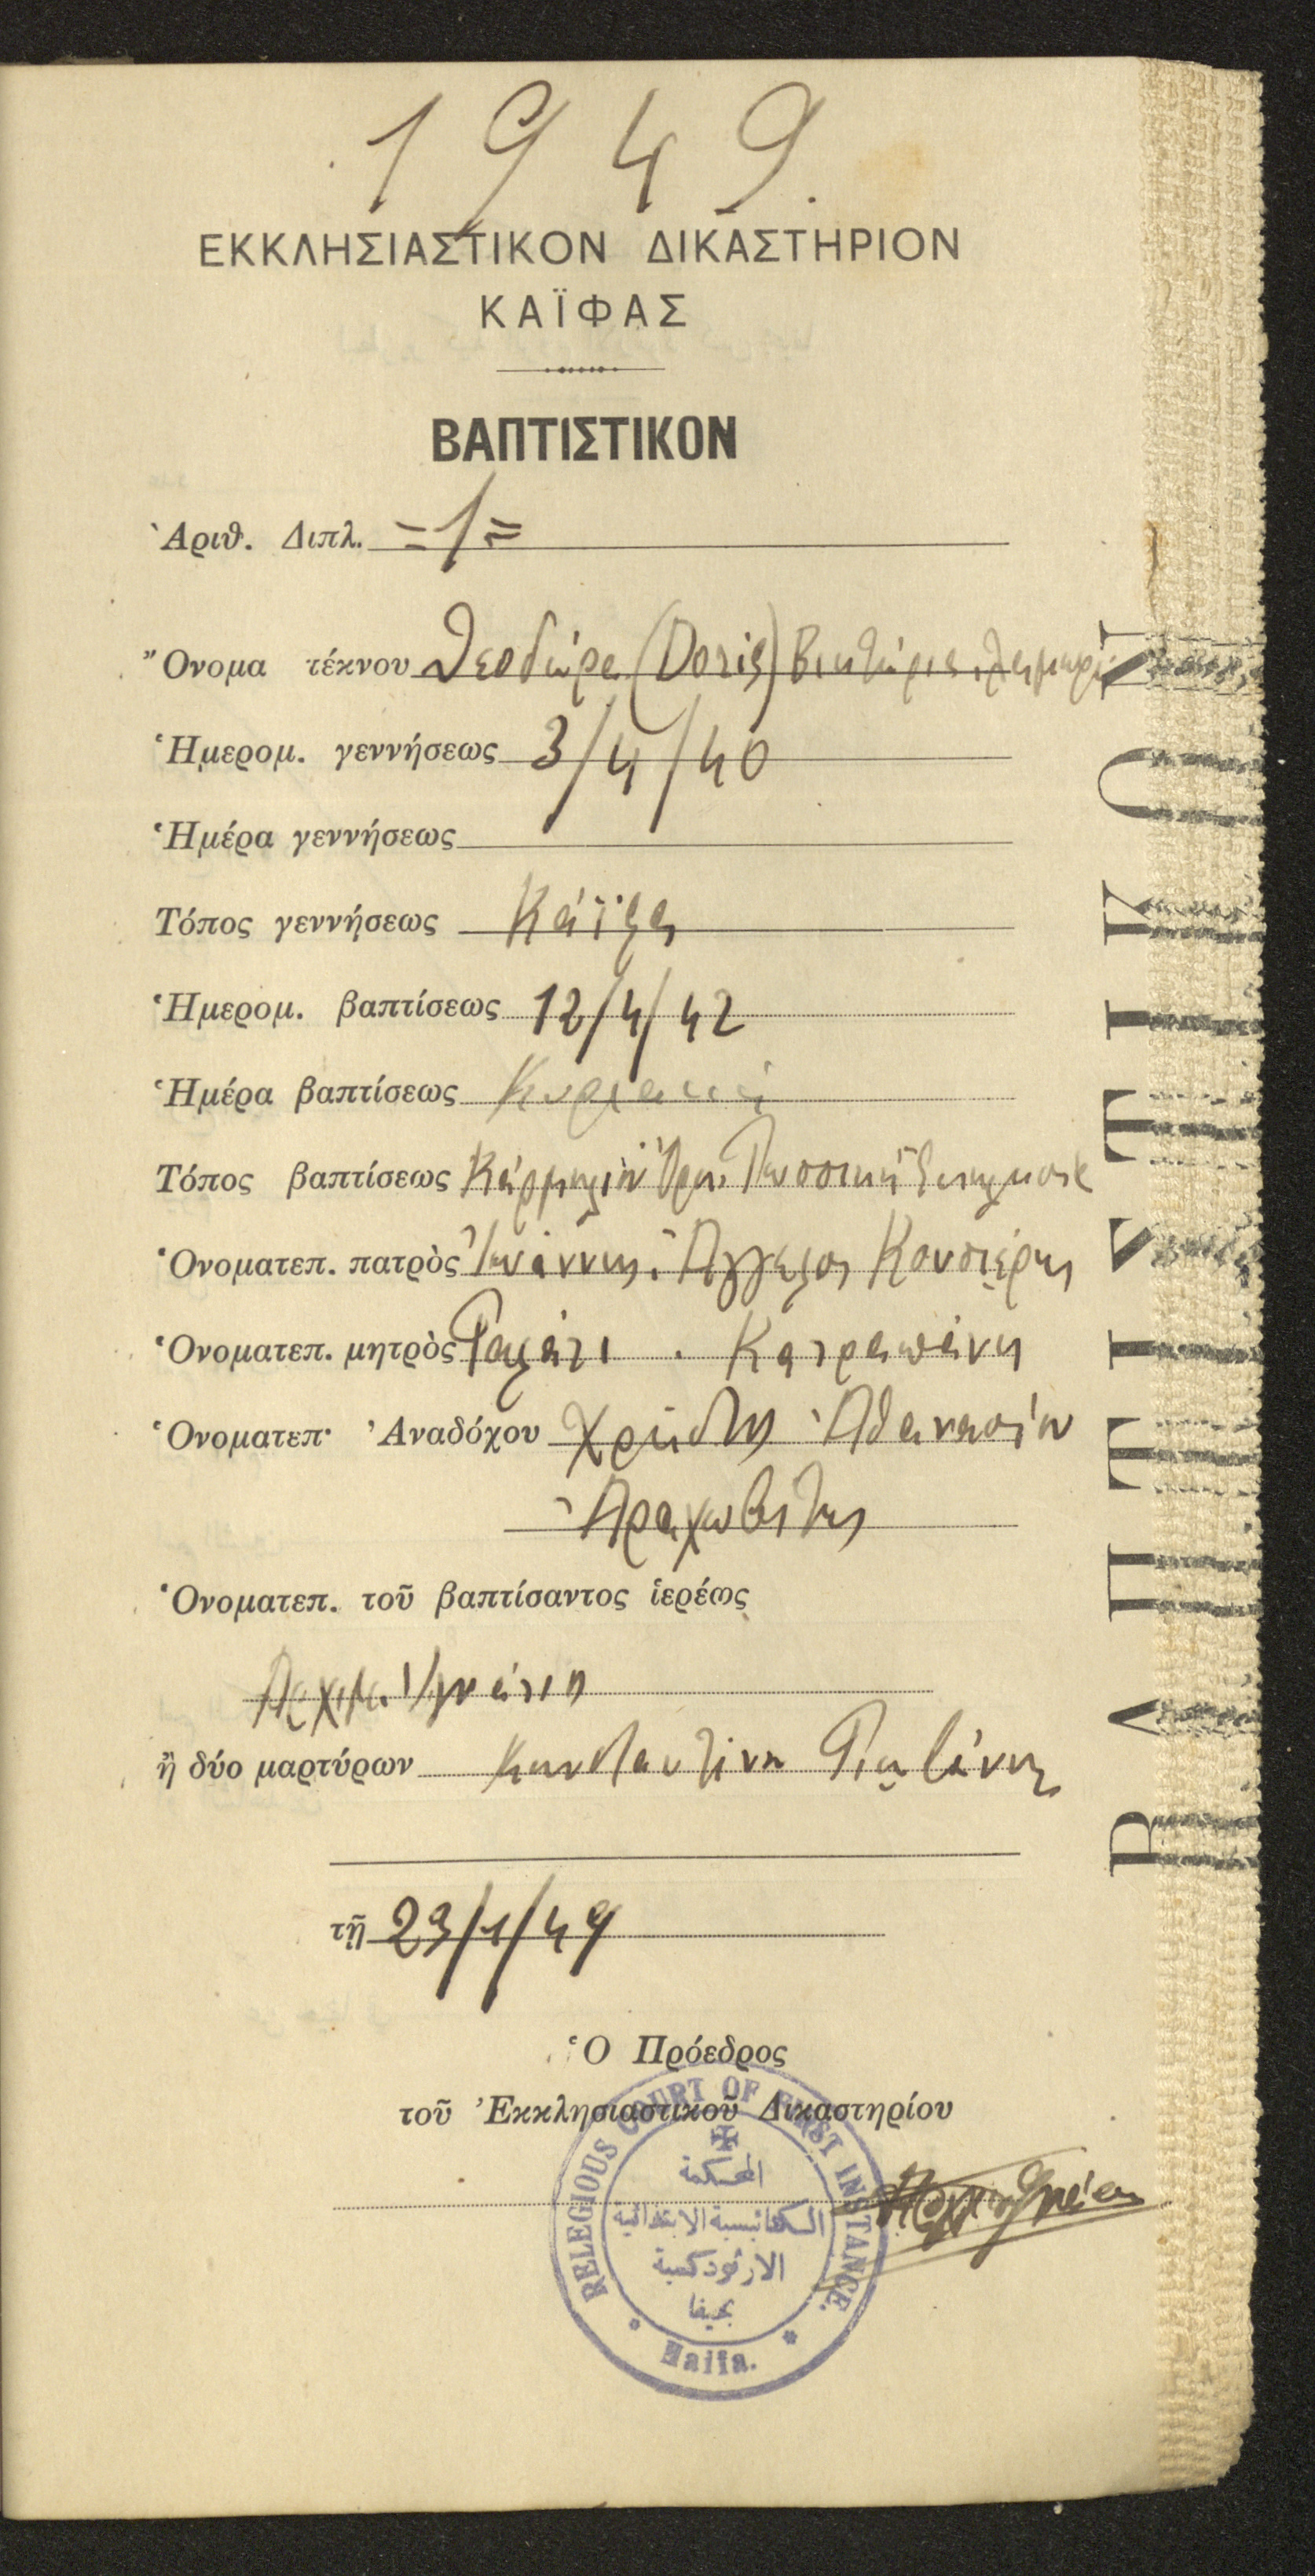 1949.
ΕΚΚΛΗΣΙΑΣΤΙΚΟΝ ΔΙΚΑΣΤΗΡΙΟΝ
ΚΑΪΦΑΣ
ΒΑΠΤΙΣΤΙΚΟΝ
Ἀριθ. Διπλ. =1=
Ὄνομα τέκνου Θεοδώρα (Doris) Βικτώρια
Ἡμερομ. γεννήσεως 3/4/40
Ἡμέρα γεννήσεως
Τόπος γεννήσεως Κάϊφα
Ἡμερομ. βαπτίσεως 12/4/42
Ἡμέρα βαπτίσεως Κυριακή
Τόπος βαπτίσεως
Ὀνοματεπ. πατρὸς Ἰωάννης Ἄγγελος
Ὀνοματεπ. μητρὸς Κατραπάνη
Ὀνοματεπ· Ἀναδόχου Χρῆστος Ἀθανασίου
Ἀραχωβίτης
Ὀνοματεπ. τοῦ βαπτίσαντος ἱερέως
Ἀρχιμ. Ἰγνάτιο
ἢ δύο μαρτύρων
τῇ 23/1/49
Ὁ Πρόεδρος
τοῦ Ἐκκλησιαστικοῦ Δικαστηρίου
RELEGIOUS COURT OF FIRST INSTANCE.
المحكمة
الكنائسية الابتدائية
الارثوذكسية
بحيفا
Haifa.
ΒΑΠΤΙΣΤΙΚΟΝ